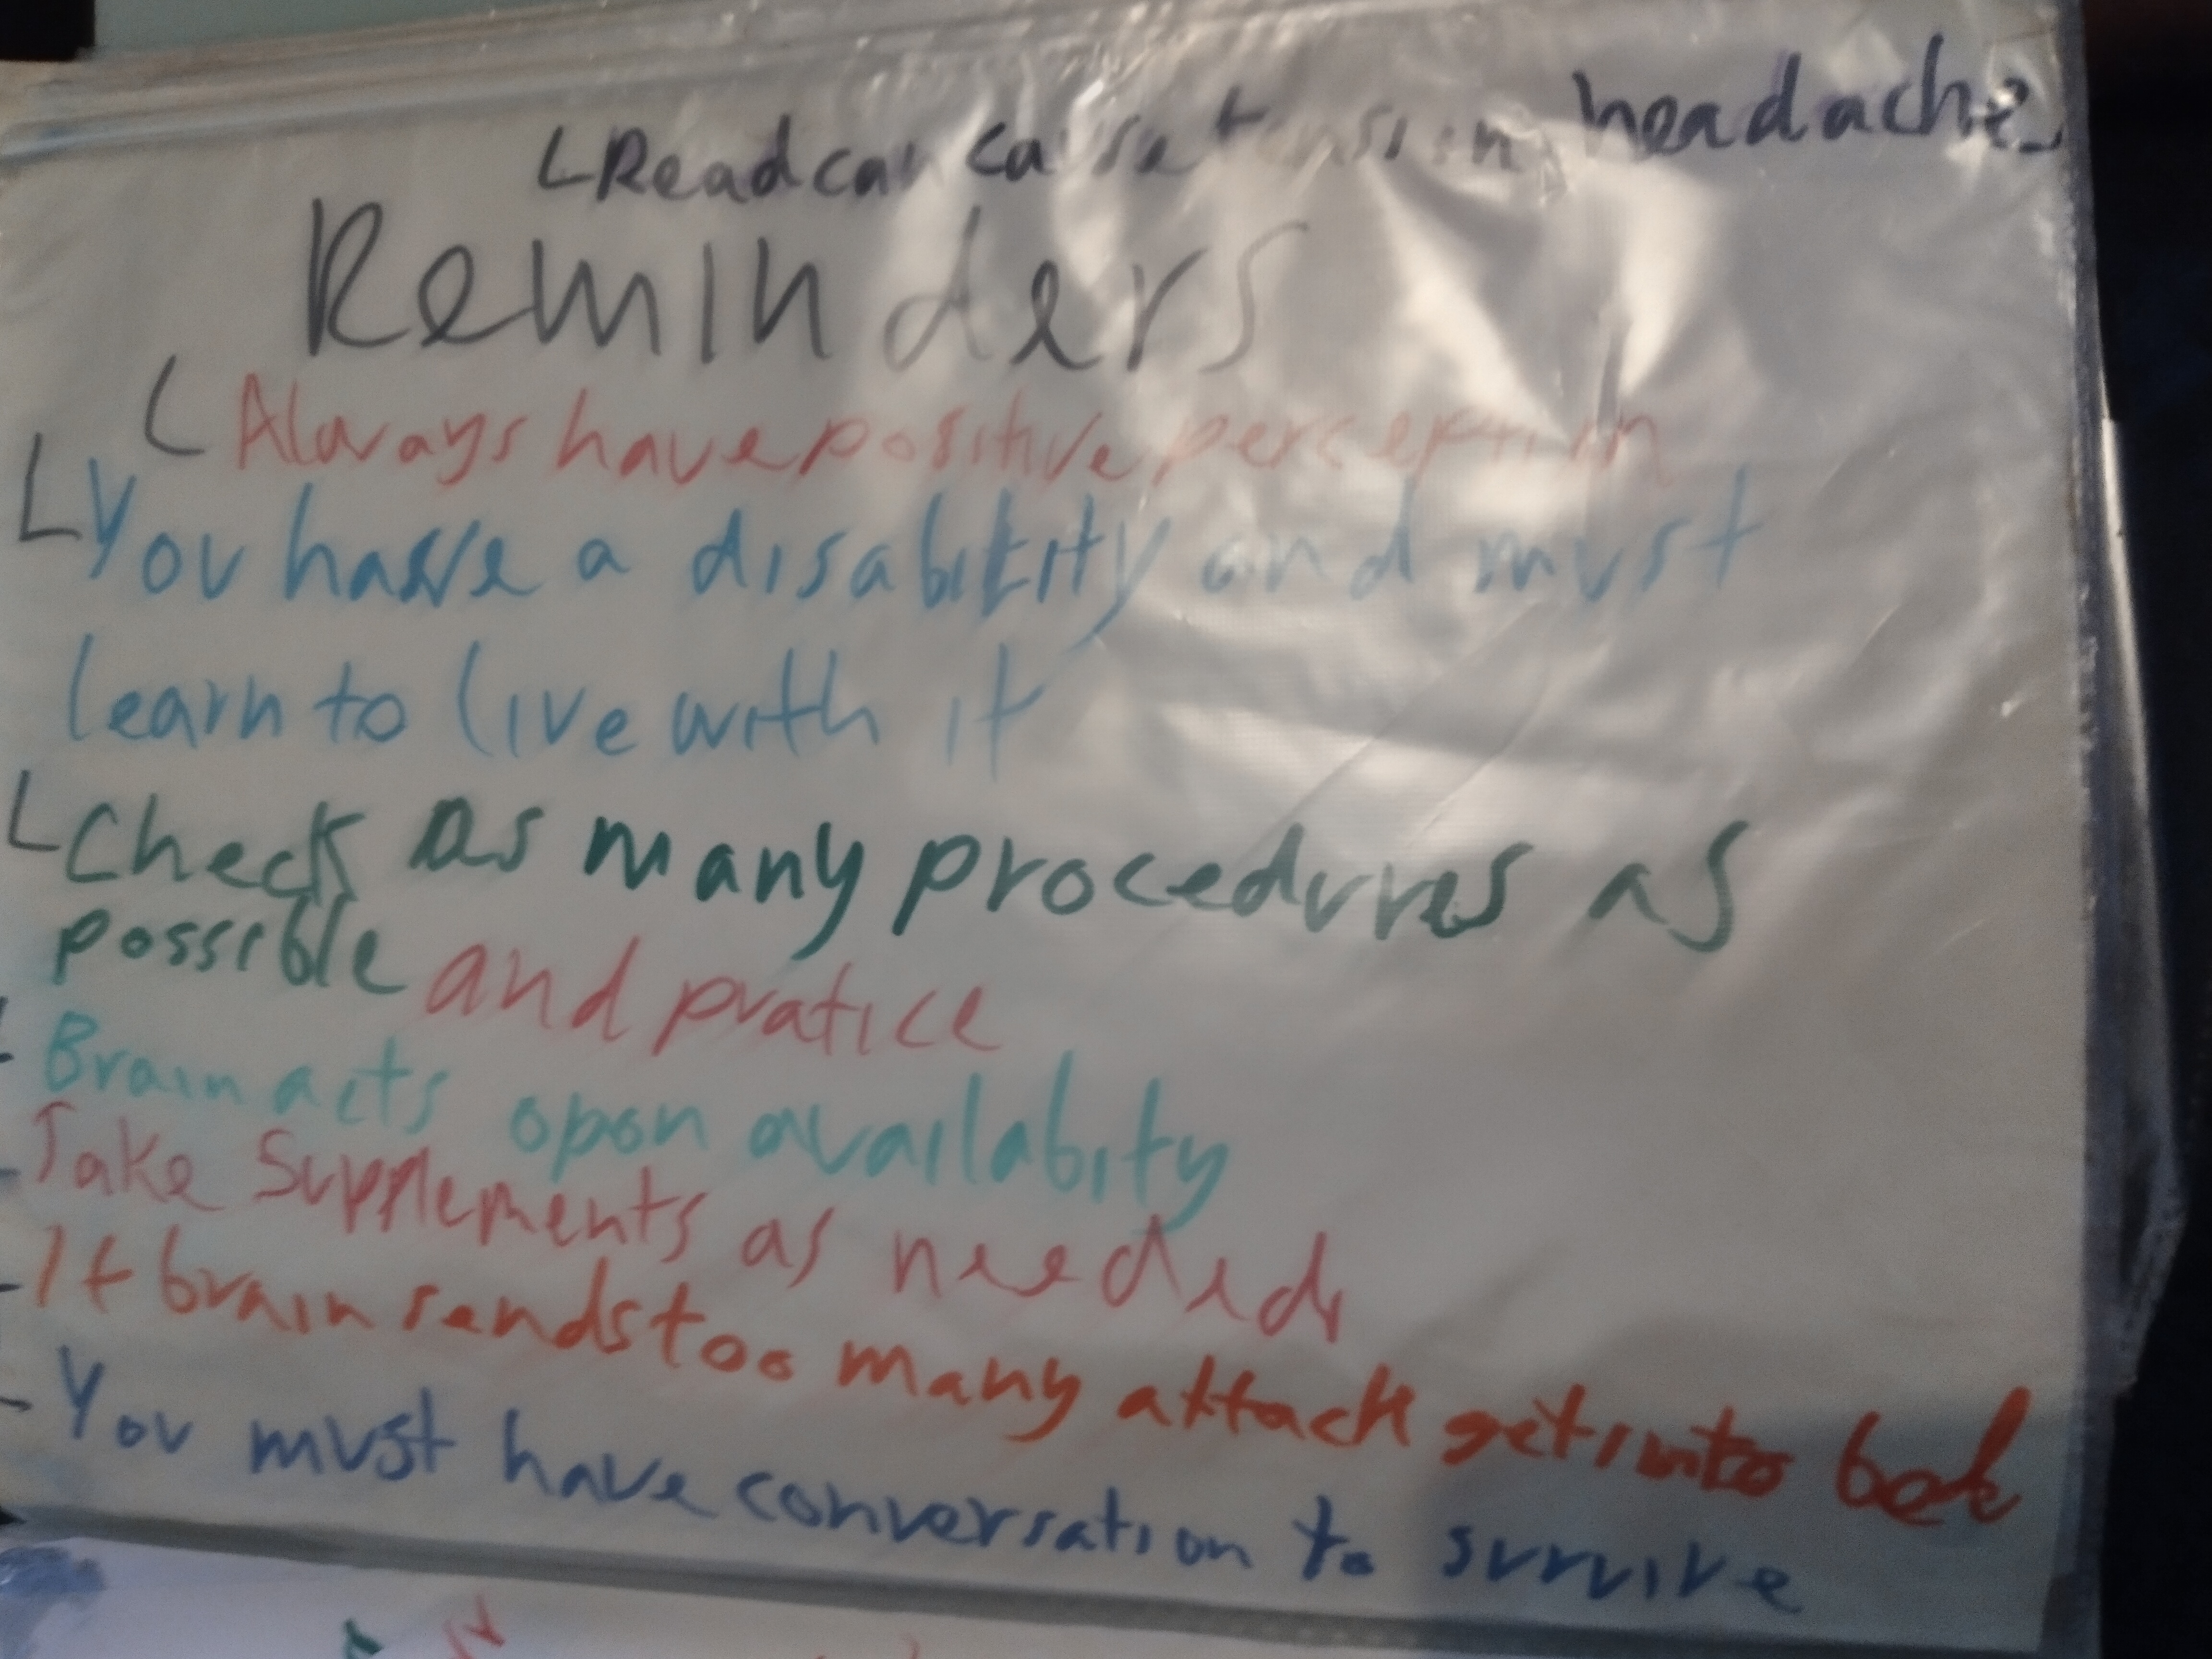 Read can cause tension headache
Reminders
Always have positive perception
You have a disability and must
learn to live with it
Check as many procedures as
possible and pratice
Brain acts opon availabity
Take Supplements as needed
If brain sends too many attack get into bed
You must have conversation to survive